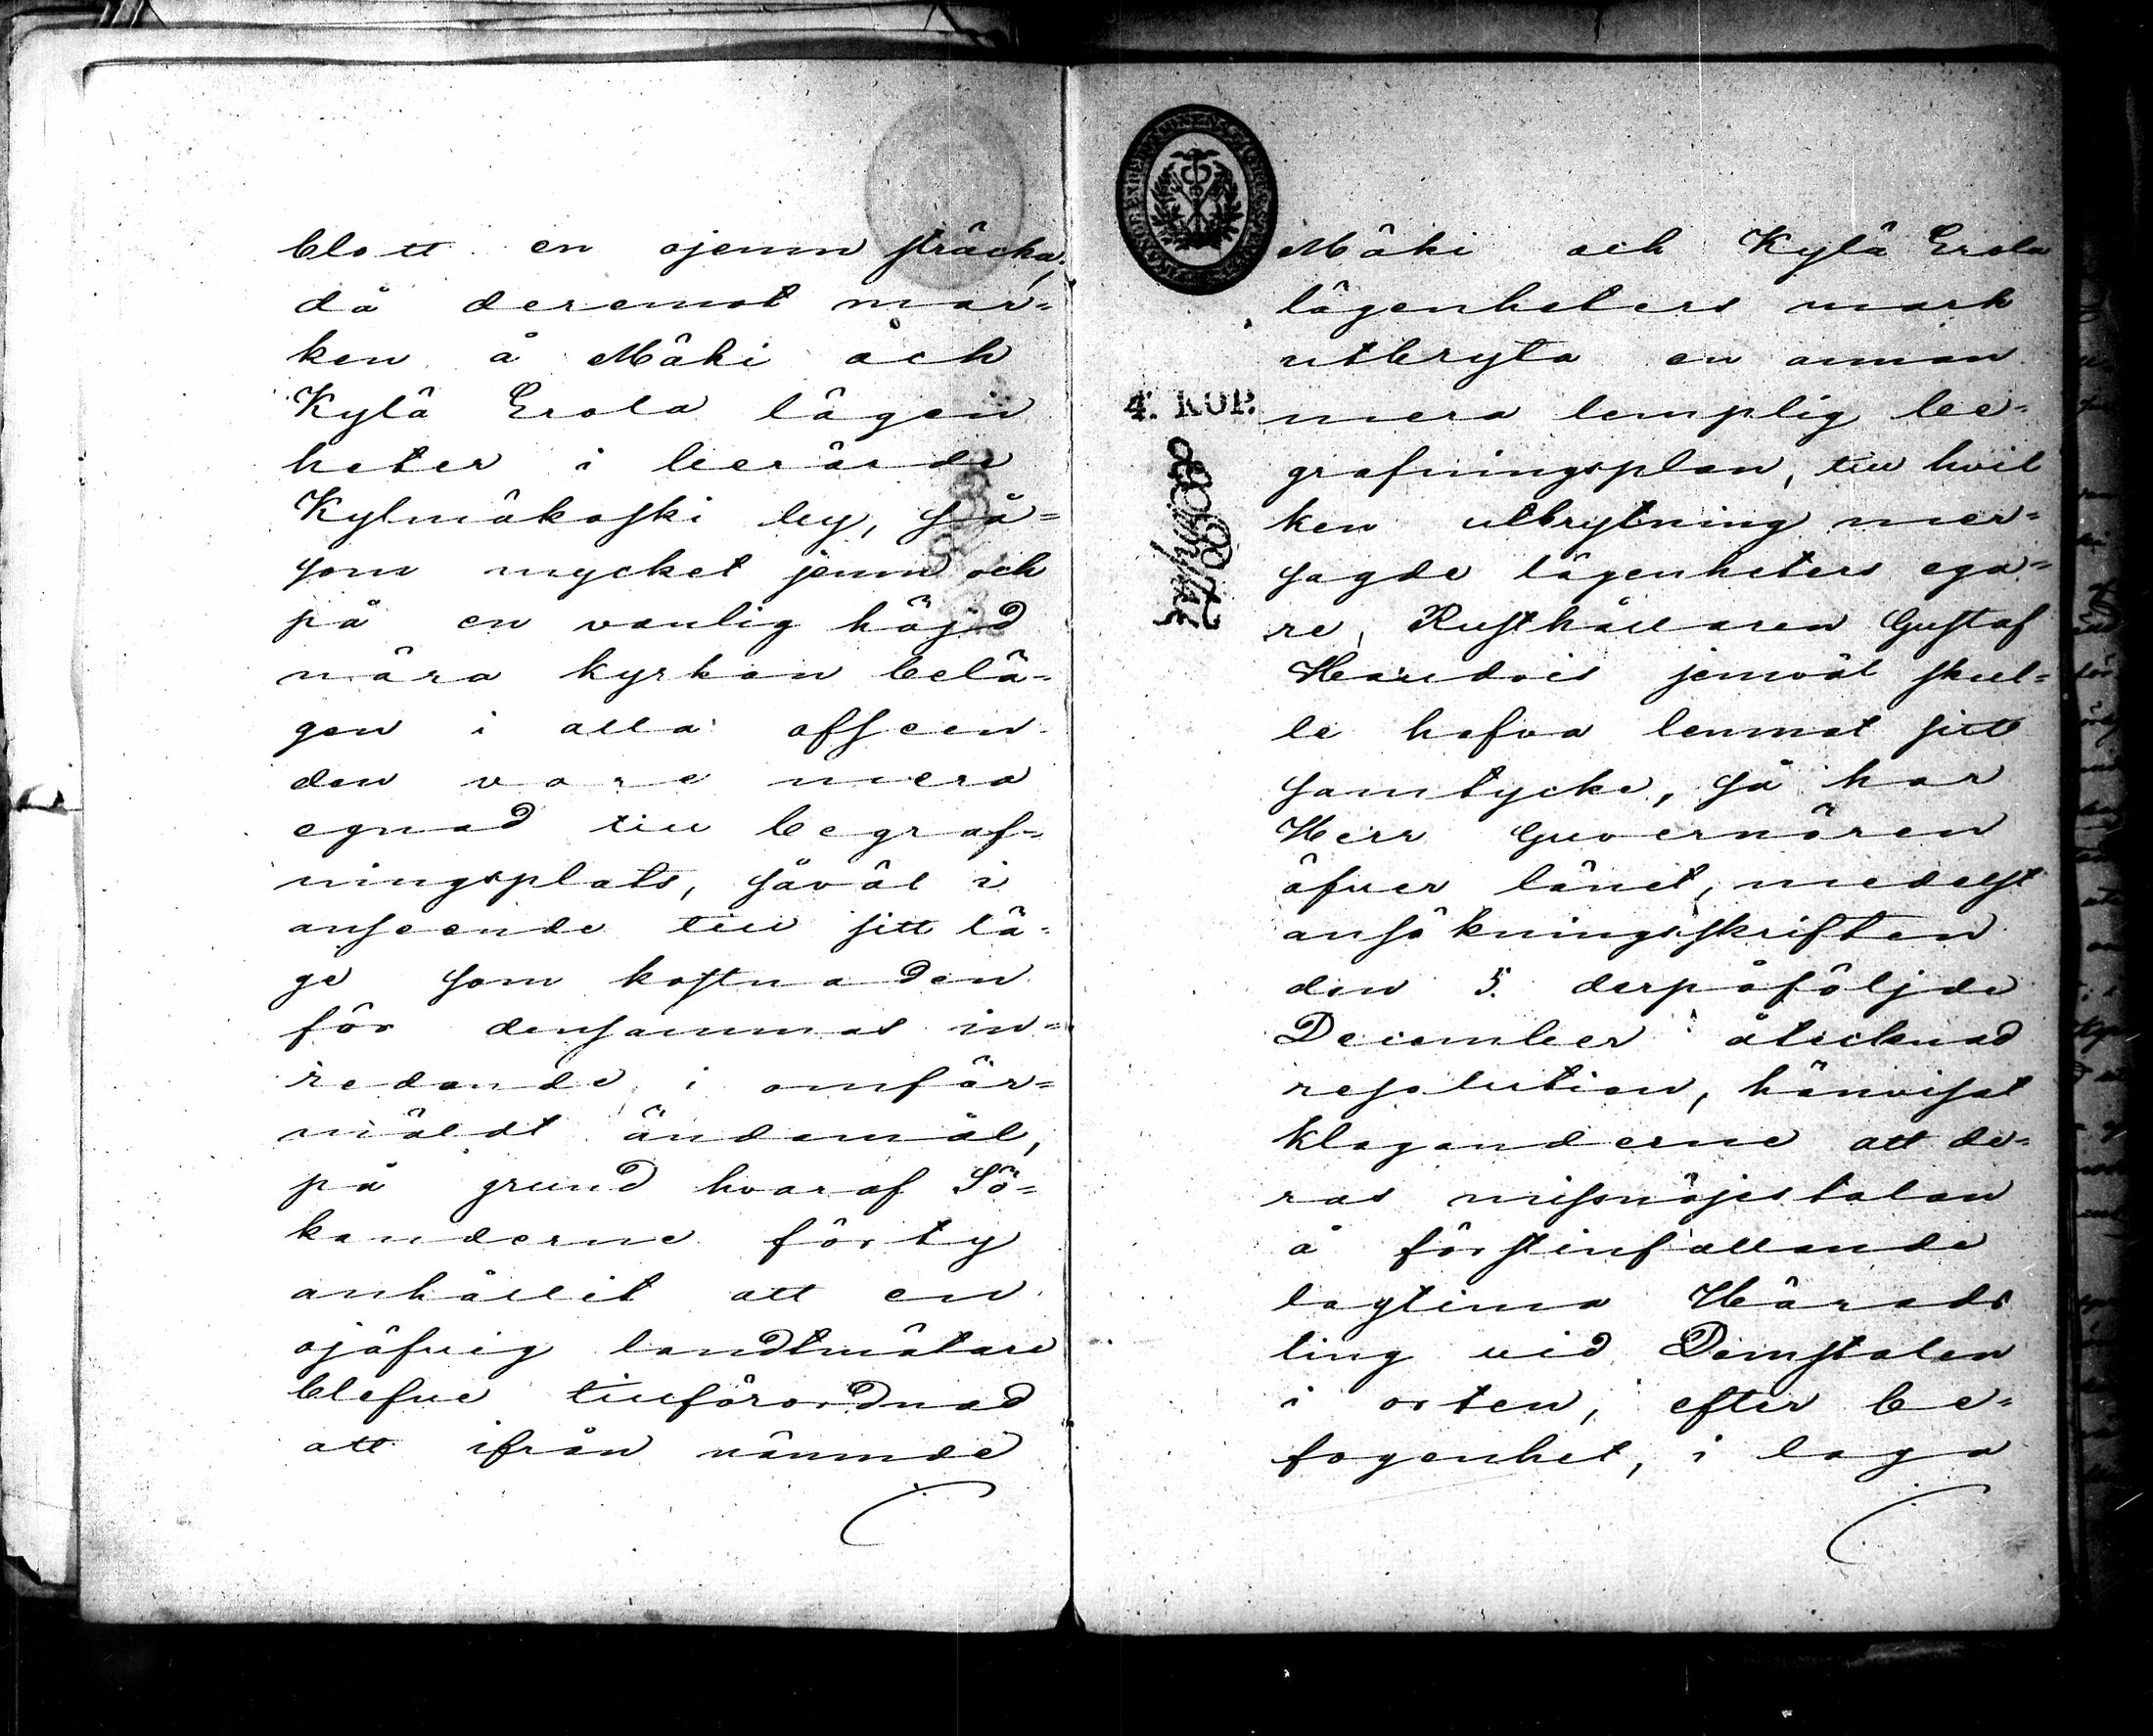 blott en ojemn sträcka,
då deremot mar=
ken å Mäki och
Kylä Erola lägen
heter i berörde
Kylmäkoski by, så=
som mycket jemn och
på en vanlig höjd
nära kyrkan belä=
gen i alla afseen
den vore mera
egnad till begraf=
ningsplats, såväl i
anseende till sitt lä=
ge som kostnaden
för densammas in=
redande i omför=
mäldt ändamål,
på grund hvaraf Sö=
kanderne förty
anhållit att en
ojäfvig landtmätare
blefve tillförordnad
att ifrån nämnde
Mäki och Kylä Erola
lägenheters mark
utbryta en annan
4. KOP.
mera lemplig be=
grafningsplan, till hvil
ken utbrytning mer=
sagde lägenheters ega=
re, Rusthållaren Gustaf
jemväl skul=
le hafva lemnat sitt
samtycke, så har
Herr Guvernören
öfver länet, medelst
ansökningsskriften
den 5. derpåföljde
December åtecknad
resolution, hänvisat
klaganderne att de=
ras missnöjestalan
å förstinfallande
lagtima Härads
ting vid Domstolen
i orten, efter be=
fogenhet, i laga